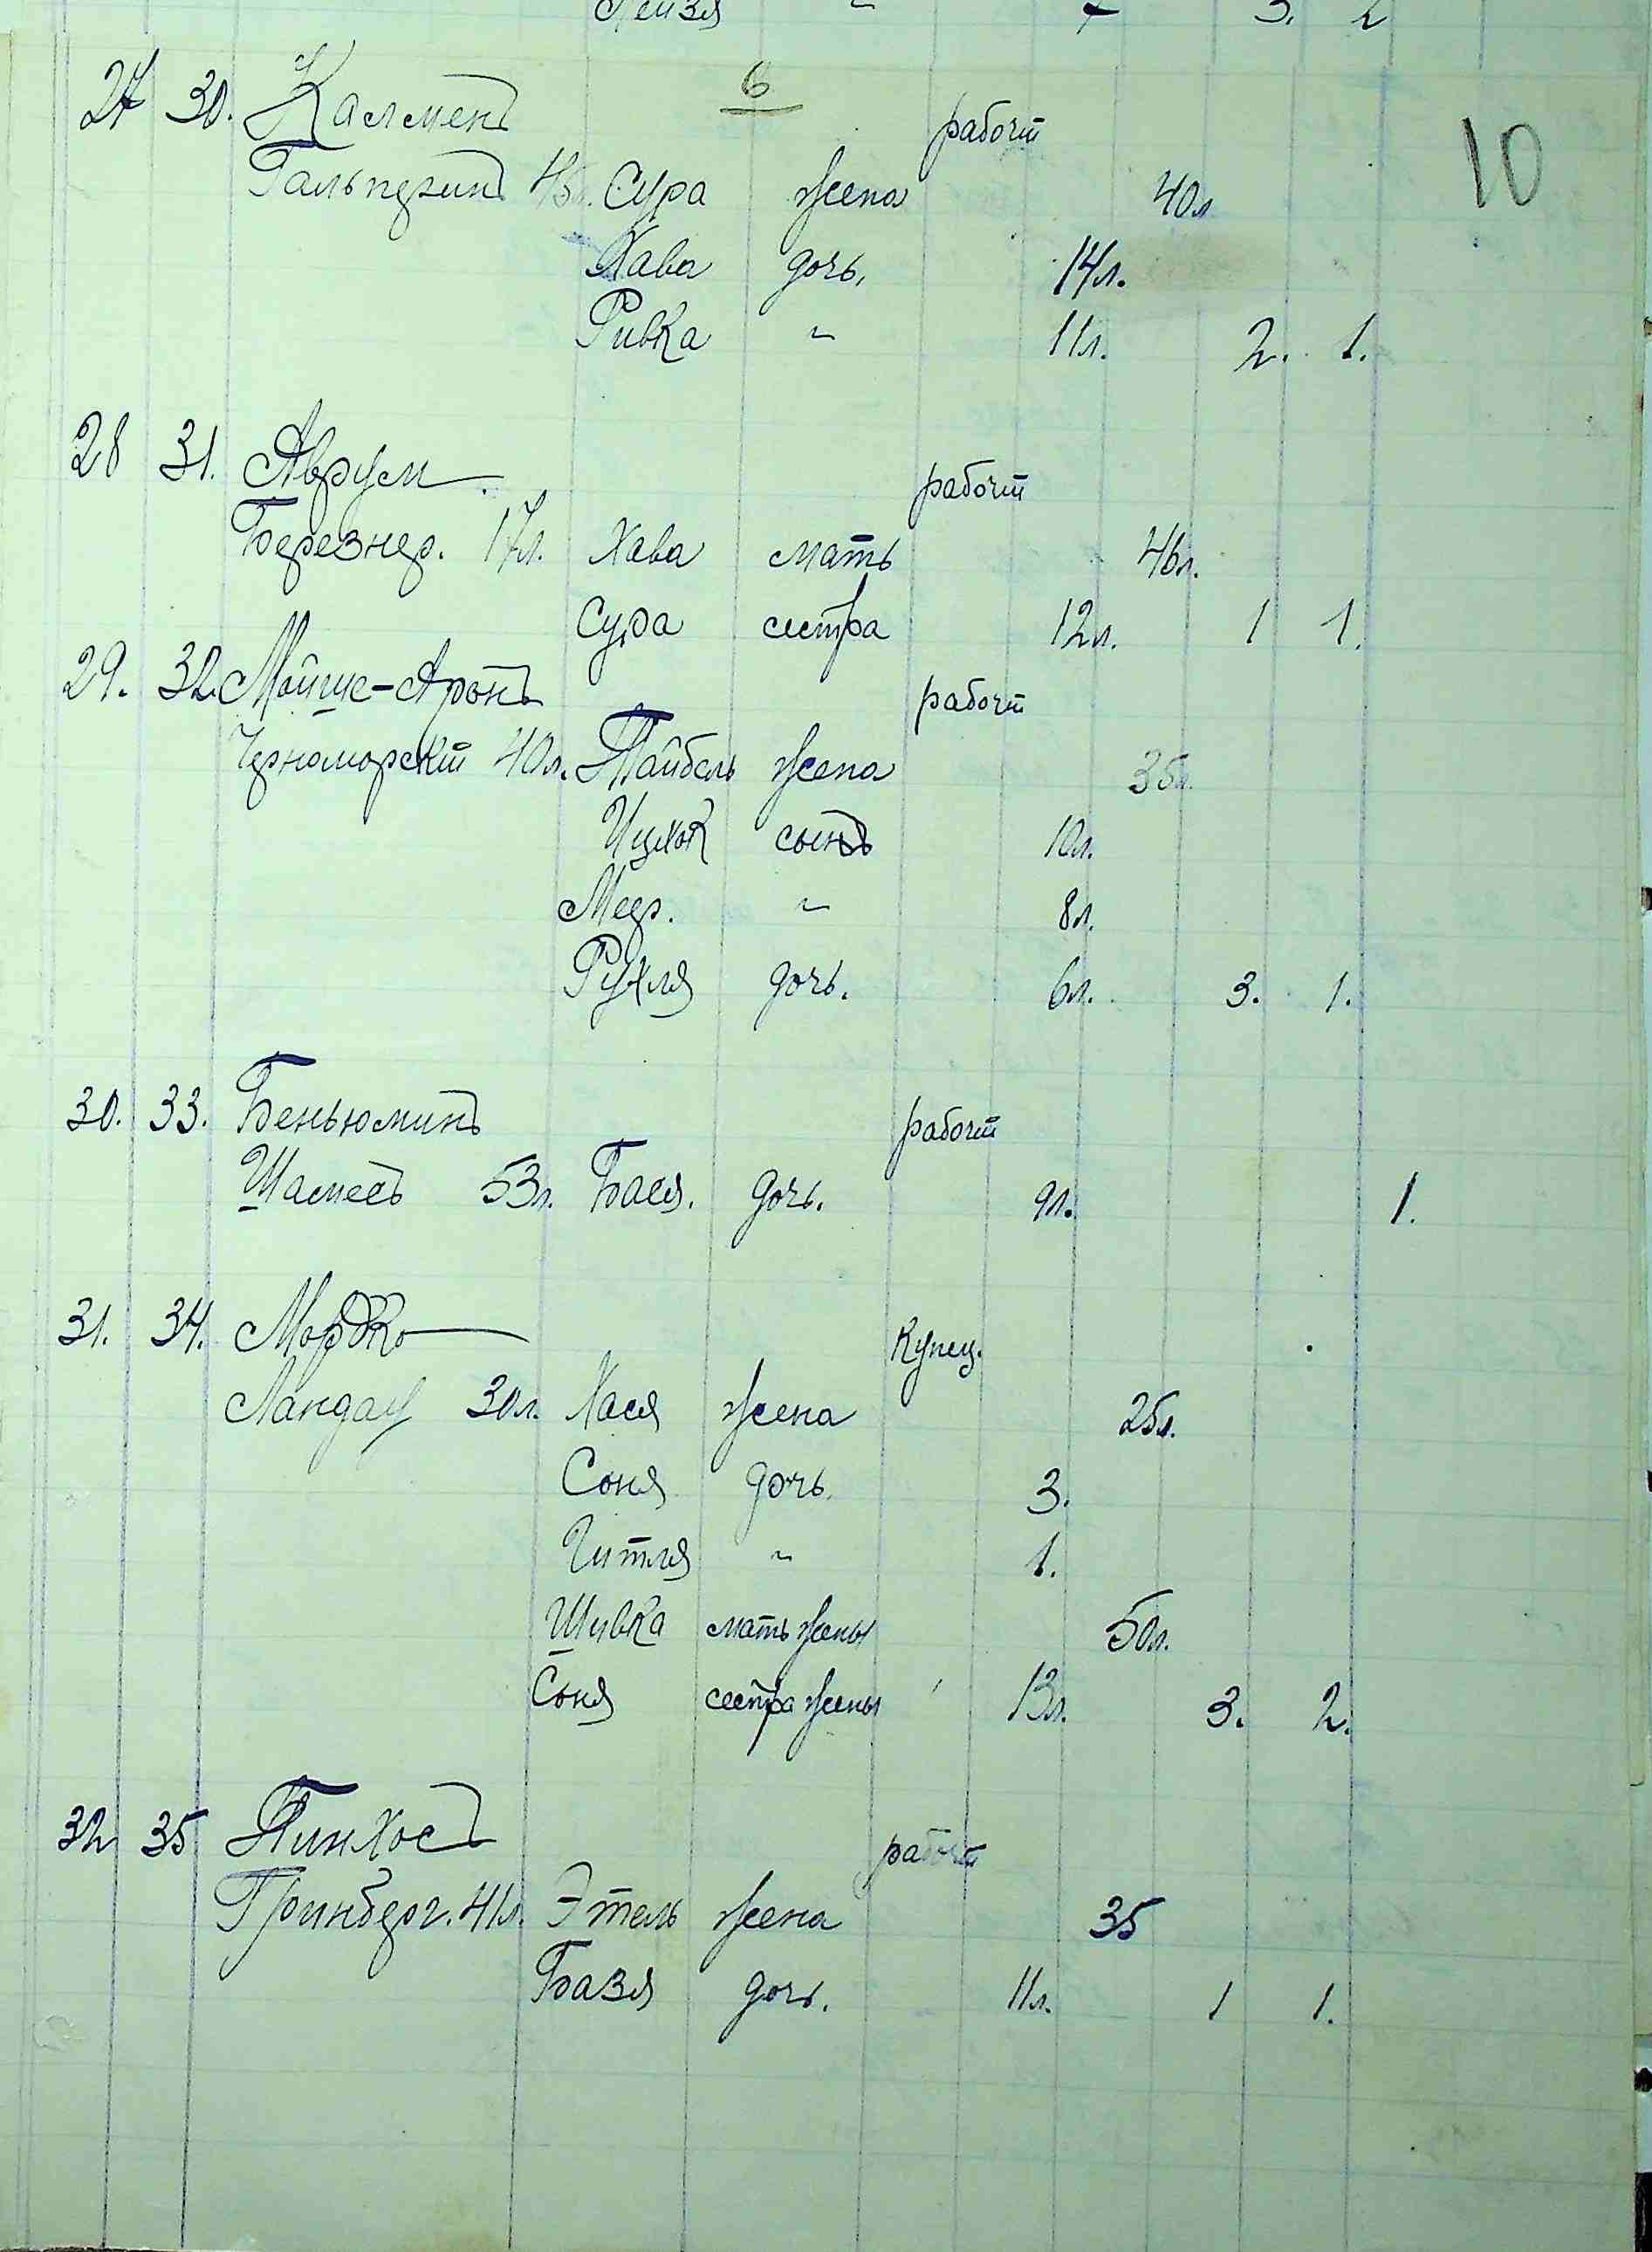 Лейзя " 7 3. 2
6
27 30. Калменъ рабочій
10
Гальперинъ 45 Сура жена 40л
Хава дочь, 14л.
Ривка " 11л. 2. 1.
28 31. Аврум рабочій
Березнер. 17л. Хава мать 46л.
Сура сестра 12л. 1 1.
29. 32. Мойше-Аронъ рабочій
Черноморскій 40л. Тайбель жена 35л.
Ицхок сынъ 10л.
Меер. " 8л.
Рухля дочь. 6л. 3. 1.
30. 33. Беньюминъ рабочій
Шамесъ 53л. Бася. дочь. 9л. 1.
31. 34. Мордко купец.
Ландау 30л. Хася жена 25л.
Соня дочь. 3.
Гитля " 1.
Шивка мать жены 50л.
Соня сестра жены 13л. 3. 2.
32 35 Пинхосъ рабочій
Гринберг. 41л. Этель жена 35
Базя дочь. 11л. 1 1.